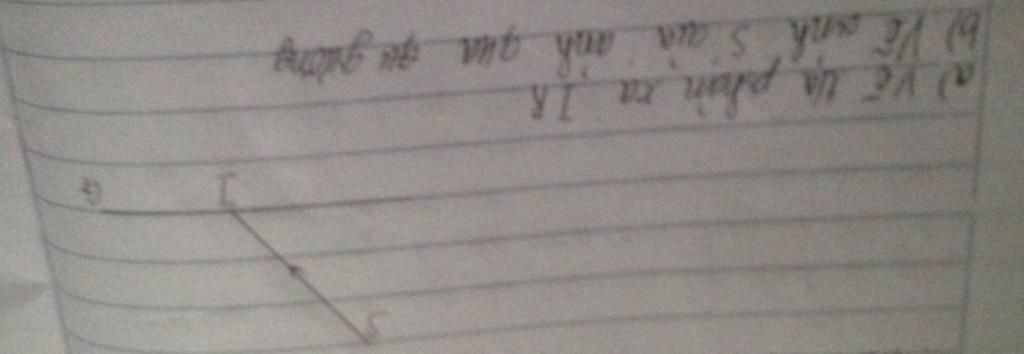 S
I
G
a) Vẽ tia phản xạ IR
b) Vẽ ảnh S' của ảnh qua gương